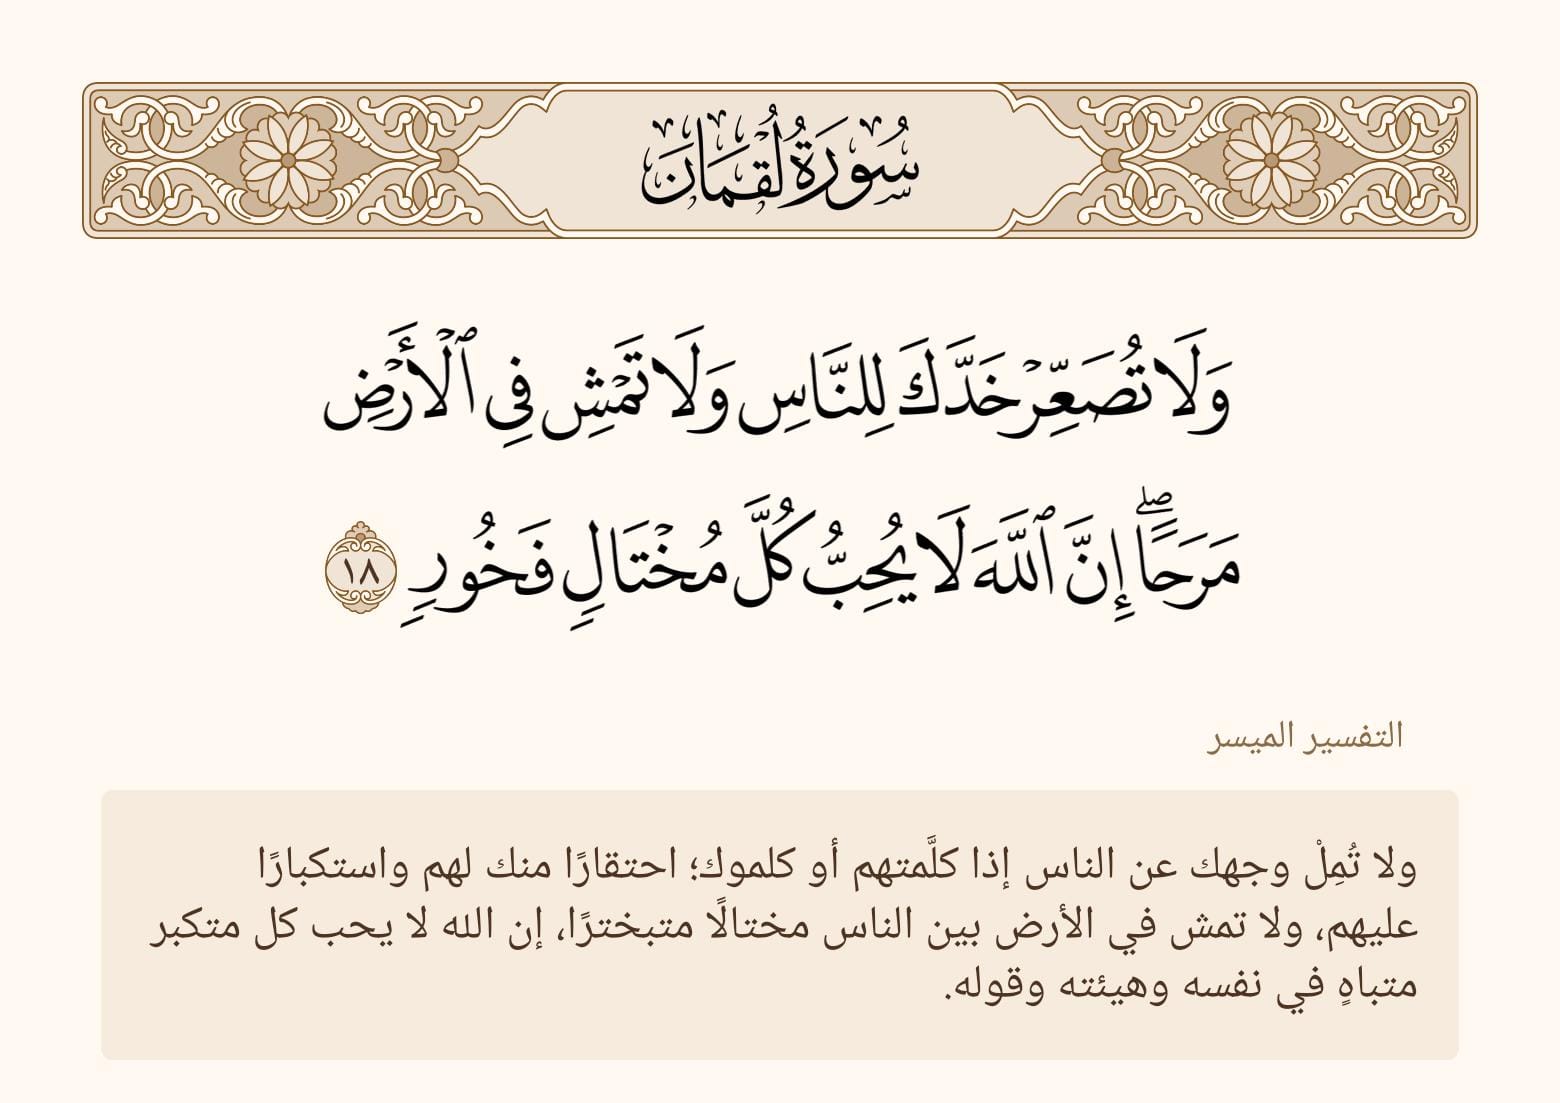 سُورَةُ لُقْمَانَ
وَلَا تُصَعِّرۡ خَدَّكَ لِلنَّاسِ وَلَا تَمۡشِ فِي ٱلۡأَرۡضِ
مَرَحًاۖ إِنَّ ٱللَّهَ لَا يُحِبُّ كُلَّ مُخۡتَالٖ فَخُورٖ ١٨
التفسير الميسر
ولا تُمِلْ وجهك عن الناس إذا كلَّمتهم أو كلموك؛ احتقارًا منك لهم واستكبارًا
عليهم، ولا تمش في الأرض بين الناس مختالًا متبخترًا، إن الله لا يحب كل متكبر
متباهٍ في نفسه وهيئته وقوله.